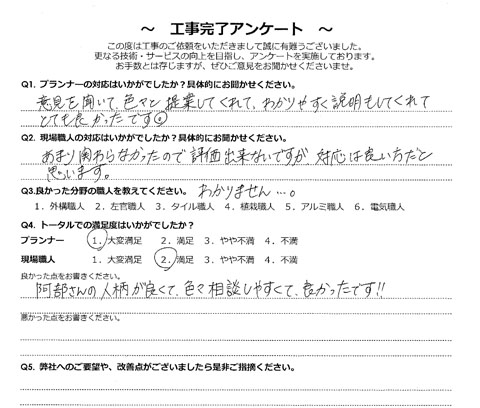 ～ 工事完了アンケート ～
この度は工事のご依頼をいただきまして誠に有難うございました。
更なる技術・サービスの向上を目指し、アンケートを実施しております。
お手数とは存じますが、ぜひご意見をお聞かせくださいませ。
Q1. プランナーの対応はいかがでしたか？具体的にお聞かせください。
意見を聞いて、色々と提案してくれて、わかりやすく説明もしてくれて
とても良かったです。
Q2. 現場職人の対応はいかがでしたか？具体的にお聞かせください。
あまり関わらなかったので評価出来ないですが 対応は良い方だと
思います。
Q3.良かった分野の職人を教えてください。 わかりません…。
1．外構職人 2．左官職人 3．タイル職人 4．植栽職人 5．アルミ職人 6．電気職人
Q4．トータルでの満足度はいかがでしたか？
プランナー 1．大変満足 2．満足 3．やや不満 4．不満
現場職人 1．大変満足 2．満足 3．やや不満 4．不満
良かった点をお書きください。
阿部さんの人柄が良くて、色々相談しやすくて、良かったです!!
悪かった点をお書きください。
Q5．弊社へのご要望や、改善点がございましたら是非ご指摘ください。